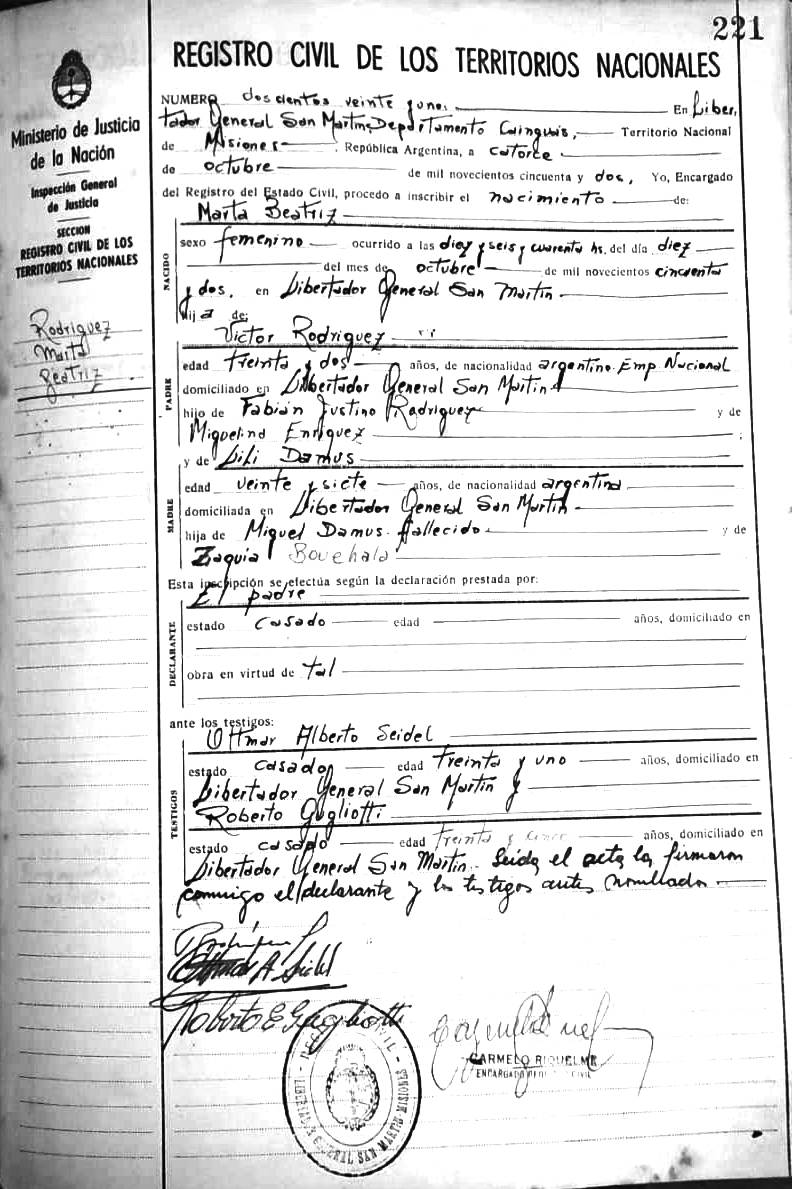 221
REGISTRO CIVIL DE LOS TERRITORIOS NACIONALES
Ministerio de Justicia
de la Nación
Inspección General
de Justicia
SECCION
REGISTRO CIVIL DE LOS
TERRITORIOS NACIONALES
Rodriguez
Marta
Beatriz
NUMERO doscientos veinte y uno. En Liber,
tador General San Martin, Departamento Cainguás, Territorio Nacional
de Misiones República Argentina, a catorce
de octubre de mil novecientos cincuenta y dos, Yo, Encargado
del Registro del Estado Civil, procedo a inscribir el nacimiento de:
Marta Beatriz
NACIDO
sexo femenino ocurrido a las diez y seis y cuarenta hs. del día diez
del mes de octubre de mil novecientos cincuenta
y dos. en Libertador General San Martin
Hija de:
Victor Rodriguez
PADRE
edad treinta y dos años, de nacionalidad argentino. Emp Nacional
domiciliado en Libertador General San Martin
hijo de Fabián Justino Rodriguez y de
Miguelina Enriquez
y de Lili Damus
MADRE
edad veinte y siete años, de nacionalidad argentina
domiciliada en Libertador General San Martin
hija de Miguel Damus. fallecido y de
Zaquia Bouchala
Esta inscripción se efectúa según la declaración prestada por:
El padre
DECLARANTE
estado casado edad años, domiciliado en
obra en virtud de tal
ante los testigos:
Ottmar Alberto Seidel
TESTIGOS
estado casado edad treinta y uno años, domiciliado en
Libertador General San Martin y
Roberto Gugliotti
estado casado edad treinta y cinco años, domiciliado en
Libertador General San Martin. Leida el acta la firmaron
conmigo el declarante y los testigos antes nombrados
Rodriguez
Ottmar A Seidel
Roberto E Gugliotti
CARMELO RIQUELME
ENCARGADO REG. CIVIL
REGISTRO CIVIL
LIBERTADOR GENERAL SAN MARTIN MISIONES